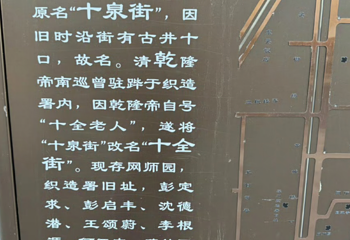 原名“十泉街”，因
旧时沿街有古井十
口，故名。清乾隆
帝南巡曾驻跸于织造
署内，因乾隆帝自号
“十全老人”，遂将
“十泉街”改名“十全
街”。现存网师园，
织造署旧址，彭定
求、彭启丰、沈德
潜、王颂蔚、李根